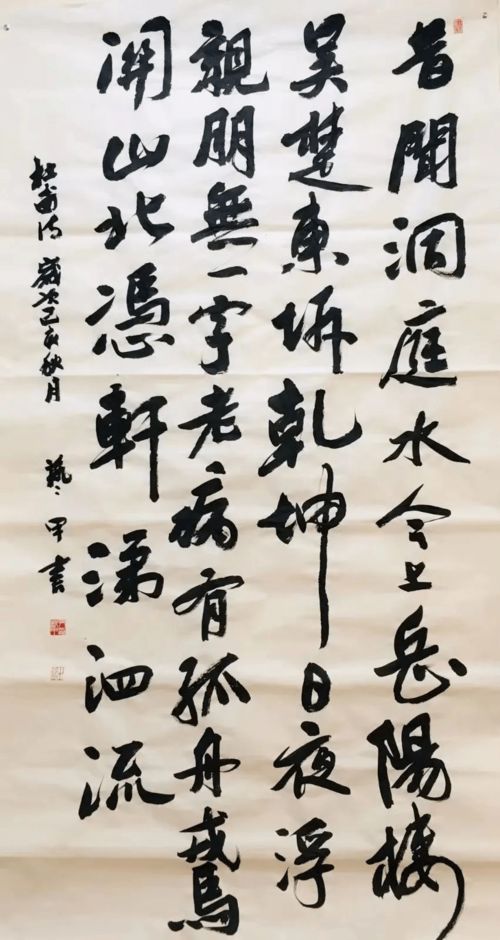 昔聞洞庭水今上岳陽樓
吴楚東坼乾坤日夜浮
親朋無一字老病有孤舟戎馬
關山北憑軒涕泗流
杜甫诗 歲次己亥秋月 藝甲書